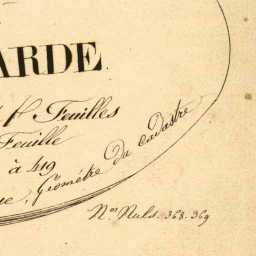 ARDE.
Feuilles
Feuille
à 419
ue, Géomètre du cadastre
Nos Nuls. 368. 369